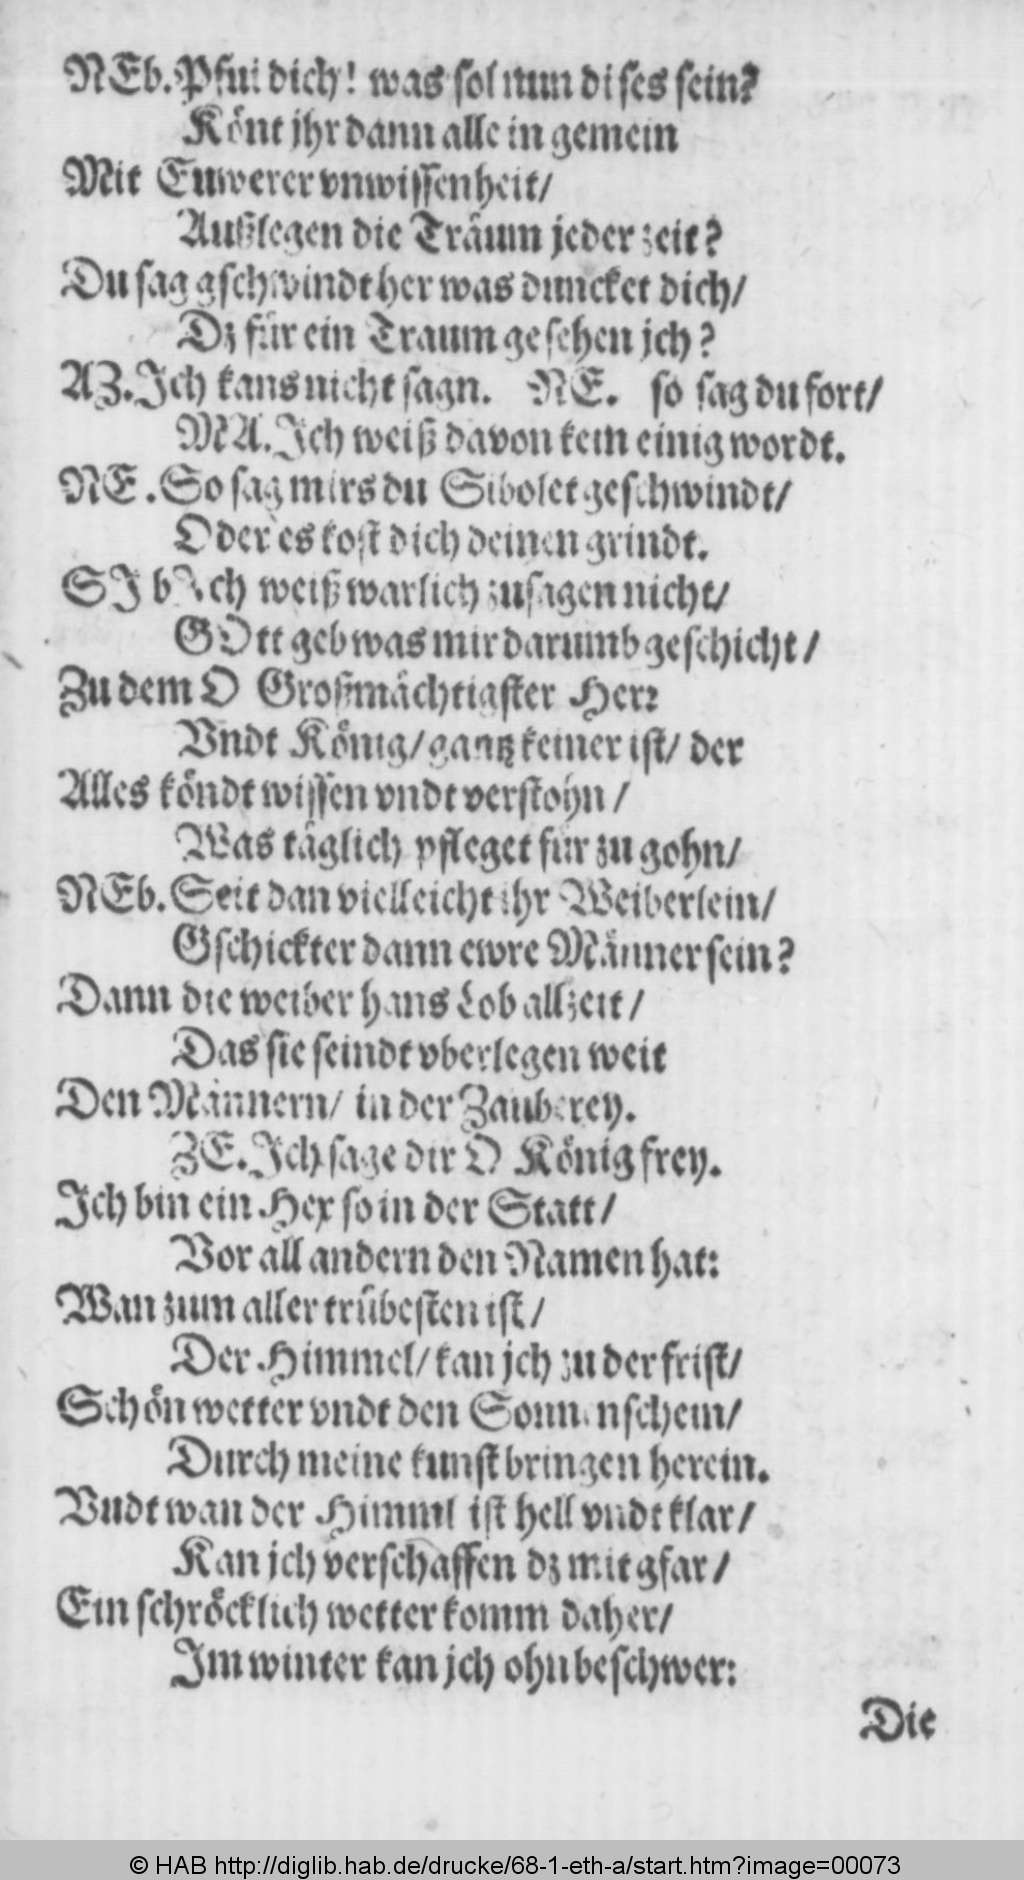 NEb. Pfui dich! was sol nun dises sein?
Könt jhr dann alle in gemein
Mit Euwerer vnwissenheit/
Außlegen die Träum jeder zeit?
Du sag gschwindt her was duncket dich/
Dz für ein Traum gesehen jch?
AZ. Ich kans nicht sagn. NE. so sag du fort/
MA. Ich weiß davon kein einig wordt.
NE. So sag mirs du Sibolet geschwindt/
Oder es kost dich deinen grindt.
SIb Ich weiß warlich zusagen nicht/
GOtt geb was mir darumb geschicht/
Zu dem O Großmächtigster Herr
Vndt König/ gantz keiner ist/ der
Alles köndt wissen vndt verstohn/
Was täglich pfleget für zu gohn/
NEb. Seit dan vielleicht ihr Weiberlein/
Gschickter dann ewre Männer sein?
Dann die weiber hans Lob allzeit/
Das sie seindt vberlegen weit
Den Männern/ in der Zauberey.
ZE. Ich sage dir O König frey.
Ich bin ein Hex so in der Statt/
Vor all andern den Namen hat:
Wan zum aller trübesten ist/
Der Himmel/ kan jch zu der frist/
Schön wetter vndt den Sonnenschein/
Durch meine kunst bringen herein.
Vndt wan der Himml ist hell vndt klar/
Kan jch verschaffen dz mit gfar/
Ein schröcklich wetter komm daher/
Im winter kan jch ohn beschwer:
Die
© HAB http://diglib.hab.de/drucke/68-1-eth-a/start.htm?image=00073